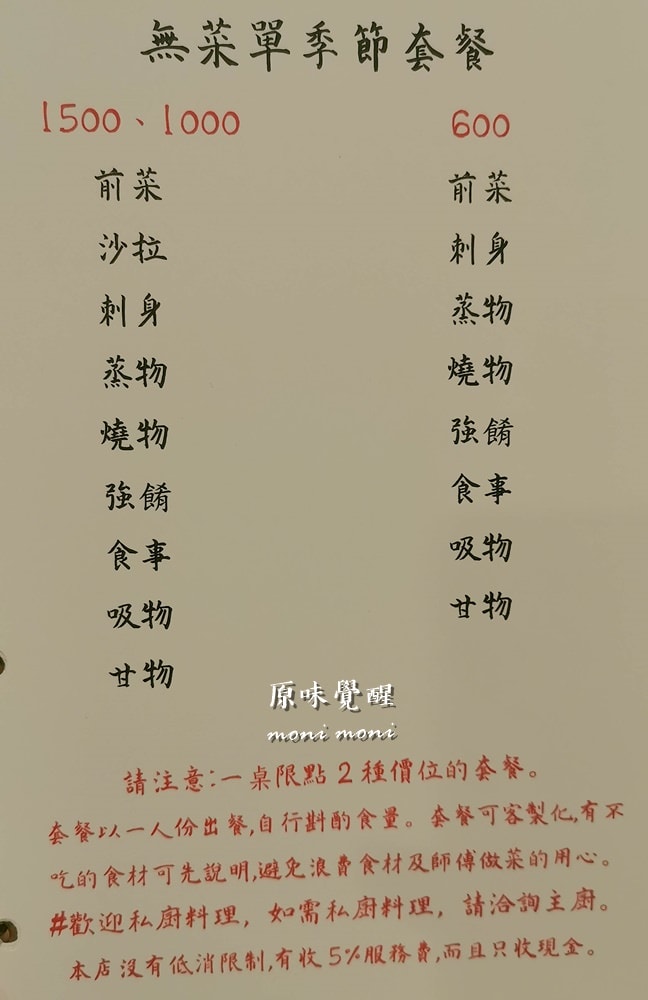 無菜單季節套餐
1500、1000
前菜
沙拉
刺身
蒸物
燒物
強餚
食事
吸物
甘物
600
前菜
刺身
蒸物
燒物
強餚
食事
吸物
甘物
原味覺醒
moni moni
請注意:一桌限點2種價位的套餐。
套餐以一人份出餐,自行斟酌食量。套餐可客製化,有不
吃的食材可先說明,避免浪費食材及師傅做菜的用心。
#歡迎私廚料理，如需私廚料理，請洽詢主廚。
本店沒有低消限制,有收5%服務費,而且只收現金。